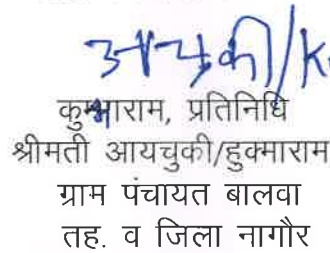 आयचुकी/K
कुम्भाराम, प्रतिनिधि
श्रीमती आयचुकी/हुक्माराम
ग्राम पंचायत बालवा
तह. व जिला नागौर